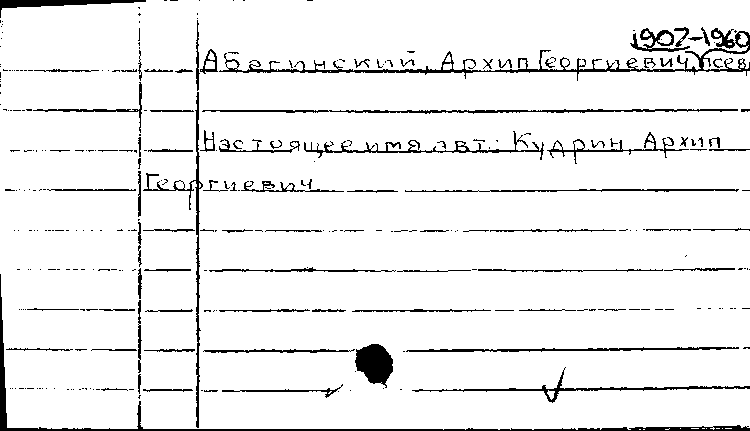 1902-1960
Абагинский, Архип Георгиевич, псев.
Настоящее имя авт.: Кудрин, Архип
Георгиевич